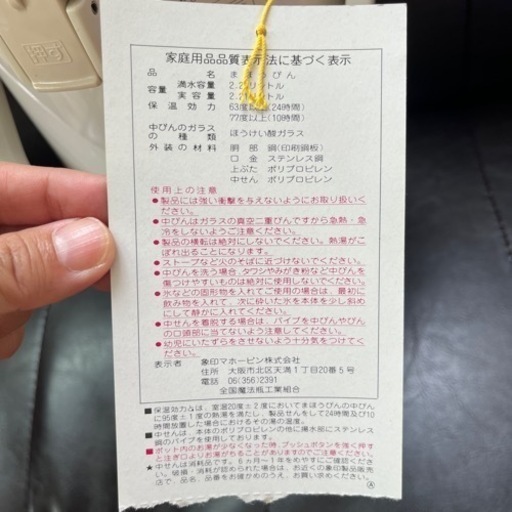 押す
家庭用品品質表示法に基づく表示
品名 まほうびん
容量 満水容量 2.2リットル
実容量 2.2リットル
保温効力 63度以上(24時間)
77度以上(10時間)
中びんのガラスの種類 ほうけい酸ガラス
外装の材料 胴部 鋼(印刷鋼板)
口金 ステンレス鋼
上ぶた ポリプロピレン
中せん ポリプロピレン
使用上の注意
●製品には強い衝撃を与えないようにお取り扱いく
ださい。
●中びんはガラスの真空二重びんですから急熱・急
冷をしないようご注意ください。
●製品の横転は絶対にしないでください。熱湯がこ
ぼれ出ることになります。
●ストーブなど火のそばに近づけないでください。
●中びんを洗う場合、タワシやみがき粉など中びんを
傷つけやすいものは絶対に使用しないでください。
●氷などの固形物を入れてご使用の場合は、最初に
飲み物を入れて、次に砕いた氷を本体を少し斜め
にして静かに入れてください。
●中せんを着脱する場合は、パイプを中びんやびん
の口頭部に当てないよう注意してください。
●幼児にいたずらをさせないよう十分気をつけてく
ださい。
表示者 象印マホービン株式会社
住所 大阪市北区天満1丁目20番5号
電話 06(356)2391
全国魔法瓶工業組合
■保温効力とは、室温20度±2度においてまほうびんの中びん
に95度±1度の熱湯を満たし、製品せんをして24時間及び10
時間放置した場合におけるその湯の温度。
■中せんは、本体のポリプロピレンの他に揚水部にステンレス
鋼のパイプを使用しております。
■ポット内のお湯が少なくなった時、プッシュボタンを強く押す
と注ぎ口よりお湯がちることがありますのでご注意ください。
★中せんは消耗品です。6ヵ月～1年をめやすにご確認くださ
い。破損・消耗が認められた場合は、お近くの象印製品販売
店で、品名、品番をお確かめのうえ、お買い求めください。
Ⓐ